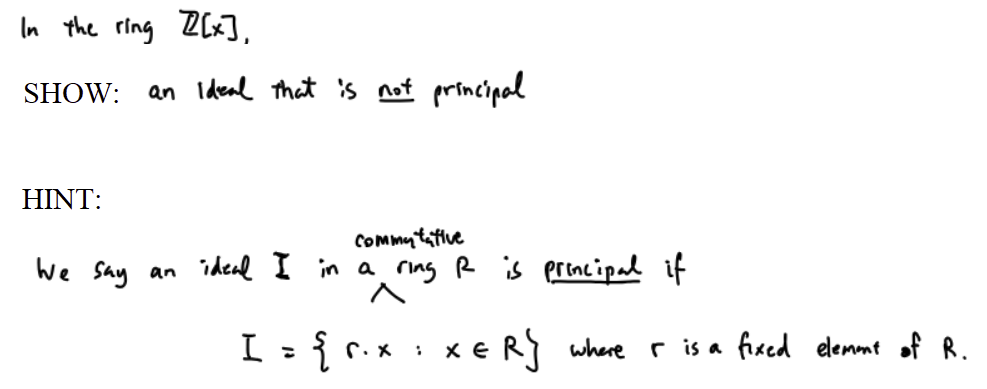 In the ring ℤ[x],
SHOW: an ideal that is not principal
HINT:
commutative
We say an ideal I in a ring R is principal if
I = { r·x : x ∈ R} where r is a fixed element of R.